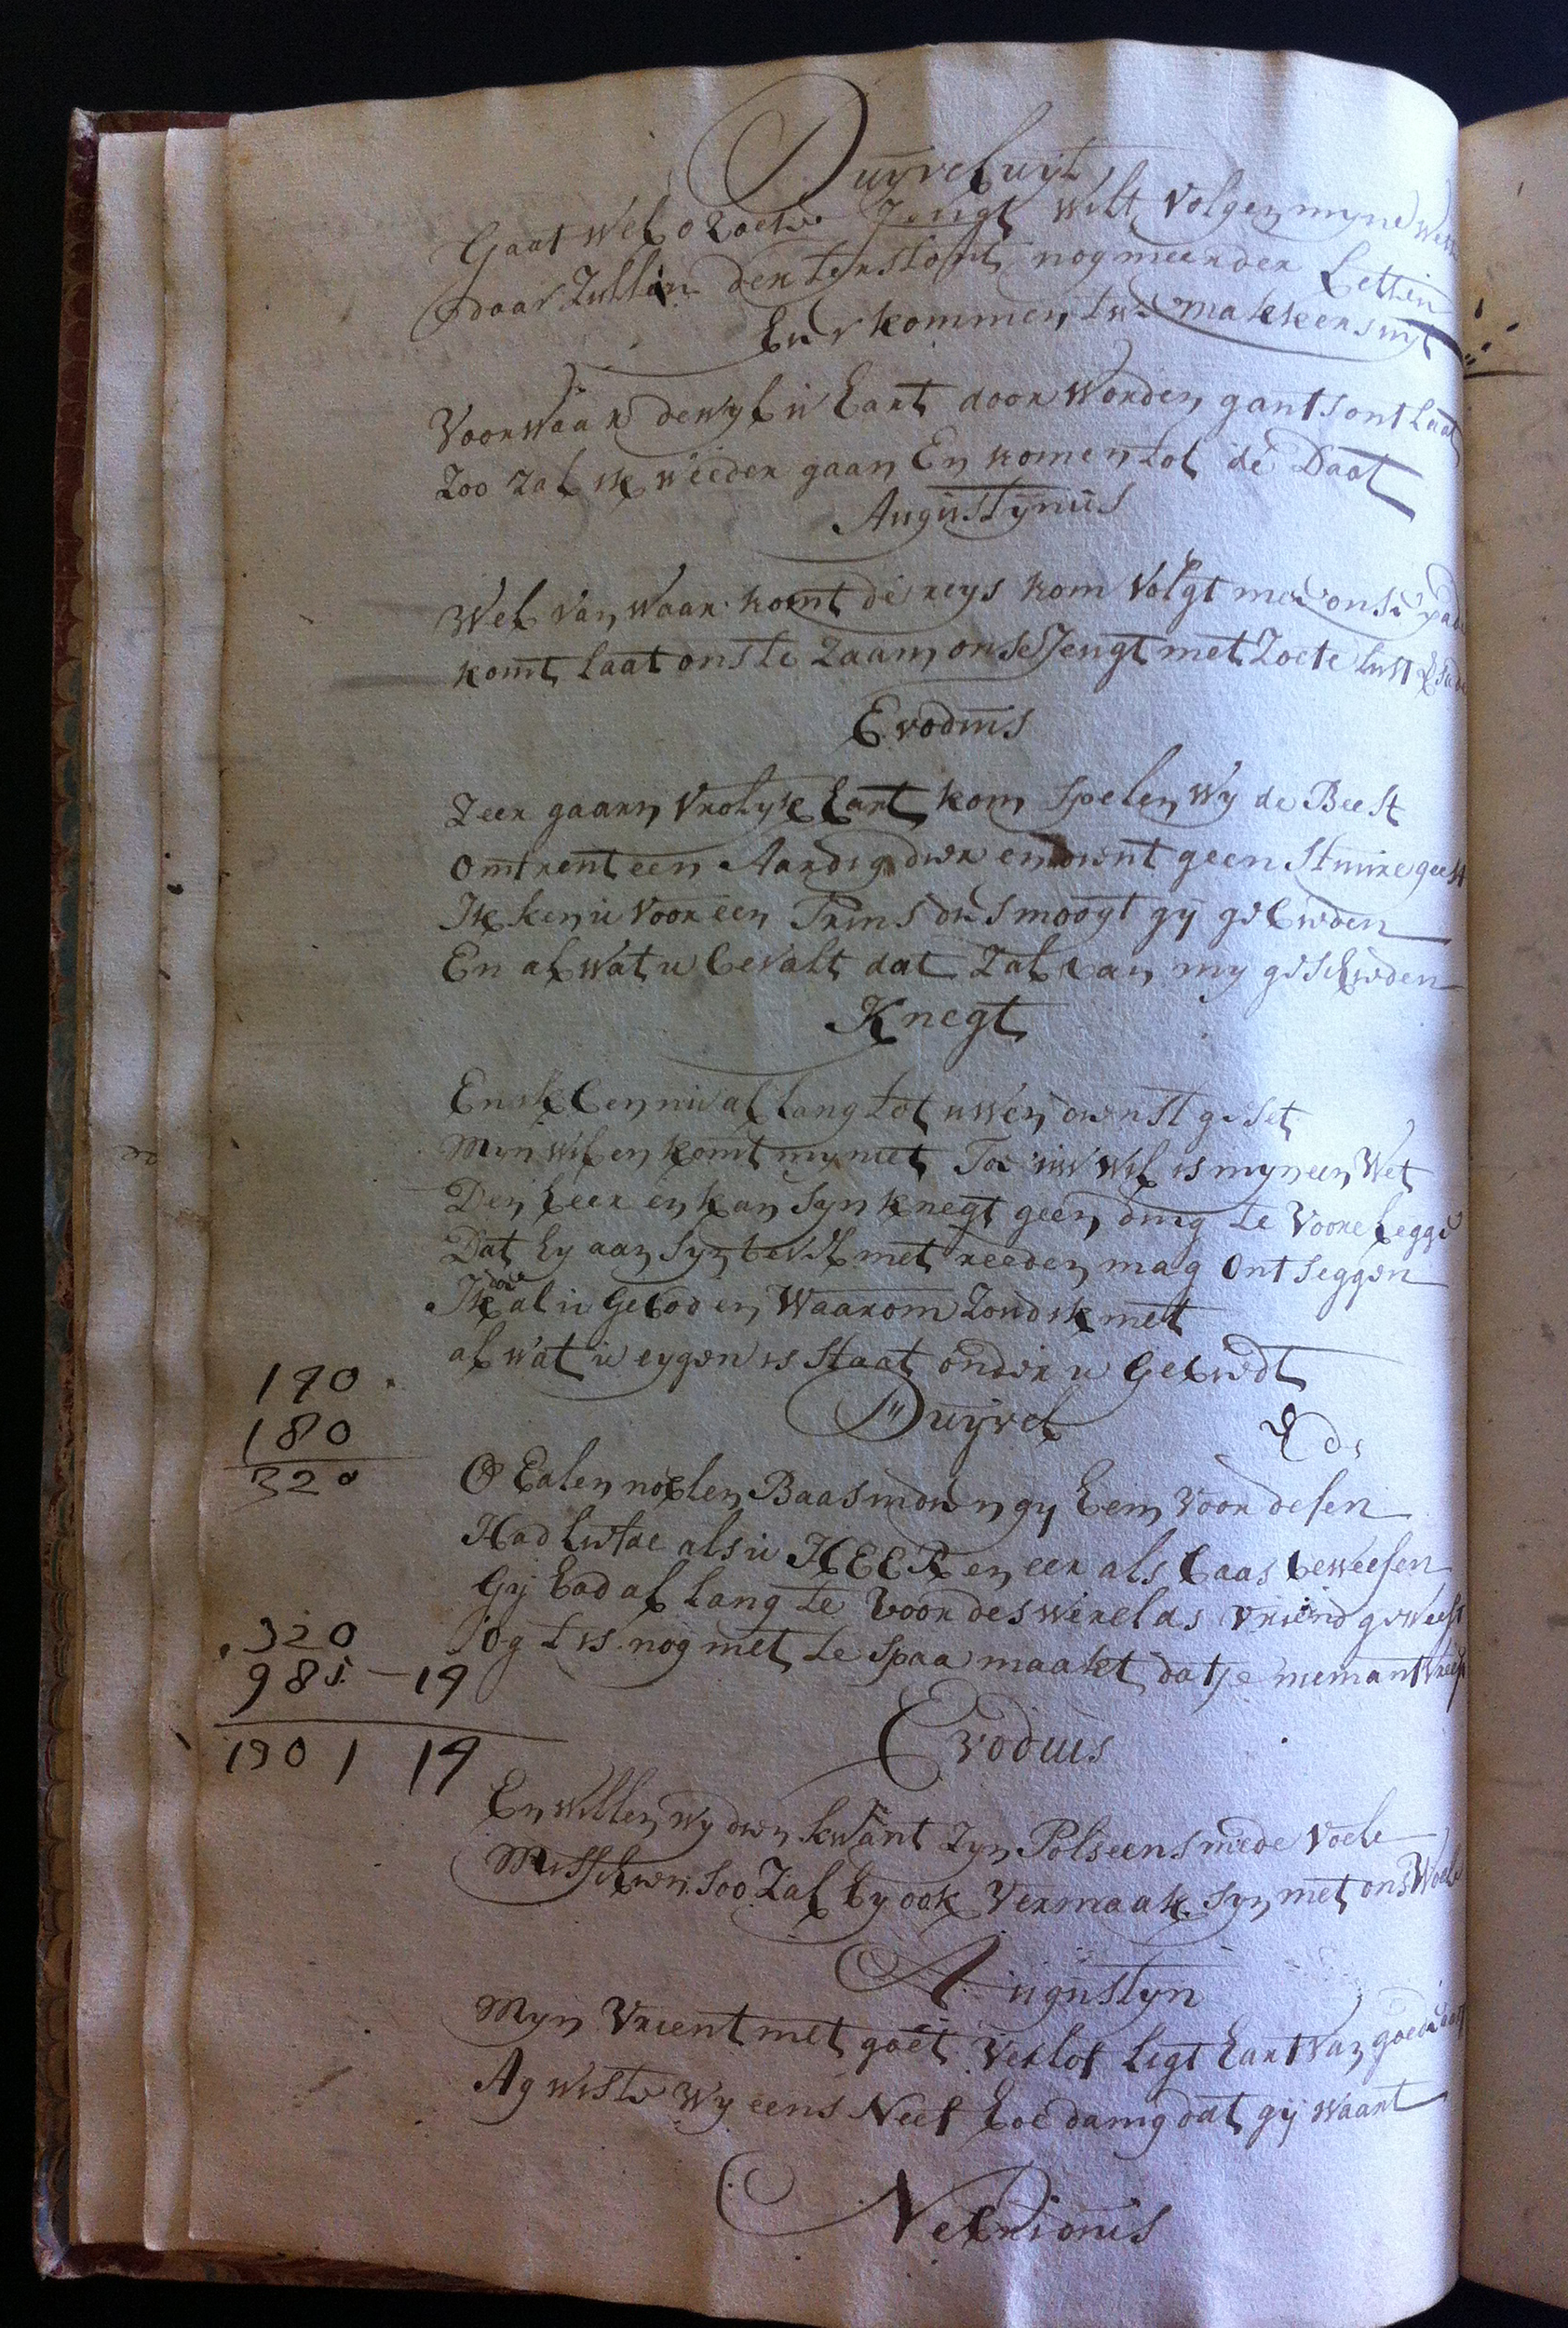 Duÿvel uijt
Gaat wel o zoete Jeugt wilt volgen myne wett
daar zullen den terstont nog meerder Letten
Hier kommen twe makkers uÿt
Voorwaar dewyl ú hart door worden gants ontlaat
Zoo zal ik weeder gaan En komen tot de Daat
Augústÿnús
Wel van waar komt de reys kom volgt met onse pade
komt laat ons te zaam onse Jeugt met zoete lust
Evodius
Zeer gaarn vrolyk hart kom spelen wy de Beest
omtrent een Aardig dier en dient geen stuure geest
Ik ken ú voor een Prins dús moogt gÿ gebieden
En al wat u bevalt dat zal van my geschieden
Knegt
En ik ben nú al lang tot uwen dienst geset
Mijn wil en komt my niet Toe úw wil is myn een Wet
Den heer en kan syn knegt geen ding te voore legge
Dat hy aan syn bevel met reeden mag ontseggen
doe
Ik al ú Geboden Waarom zoud ik niet
al wat ú eygen is staat onder u Gebiedt
Duÿvel
190
180
320
O Ealen noblen Baas indien gy hem voor desen
Had liefde als ú HEER en eer als baas beweesen
Gÿ had al lang te voor des werelds vriend geweest
Dog t is nog niet te spaa maakt dat je niemant vreest
320
985 - 19
1301 19
Evodius
En willen wy dien kwant zyn Pols eens mede voele
Misschien soo zal hy ook vermaak syn met ons woele
Augustyn
Myn Vrient met goet verlof ligt hart van goede
Ag wiste wy eens Neef hoedanig dat gÿ waart
Nebridiús